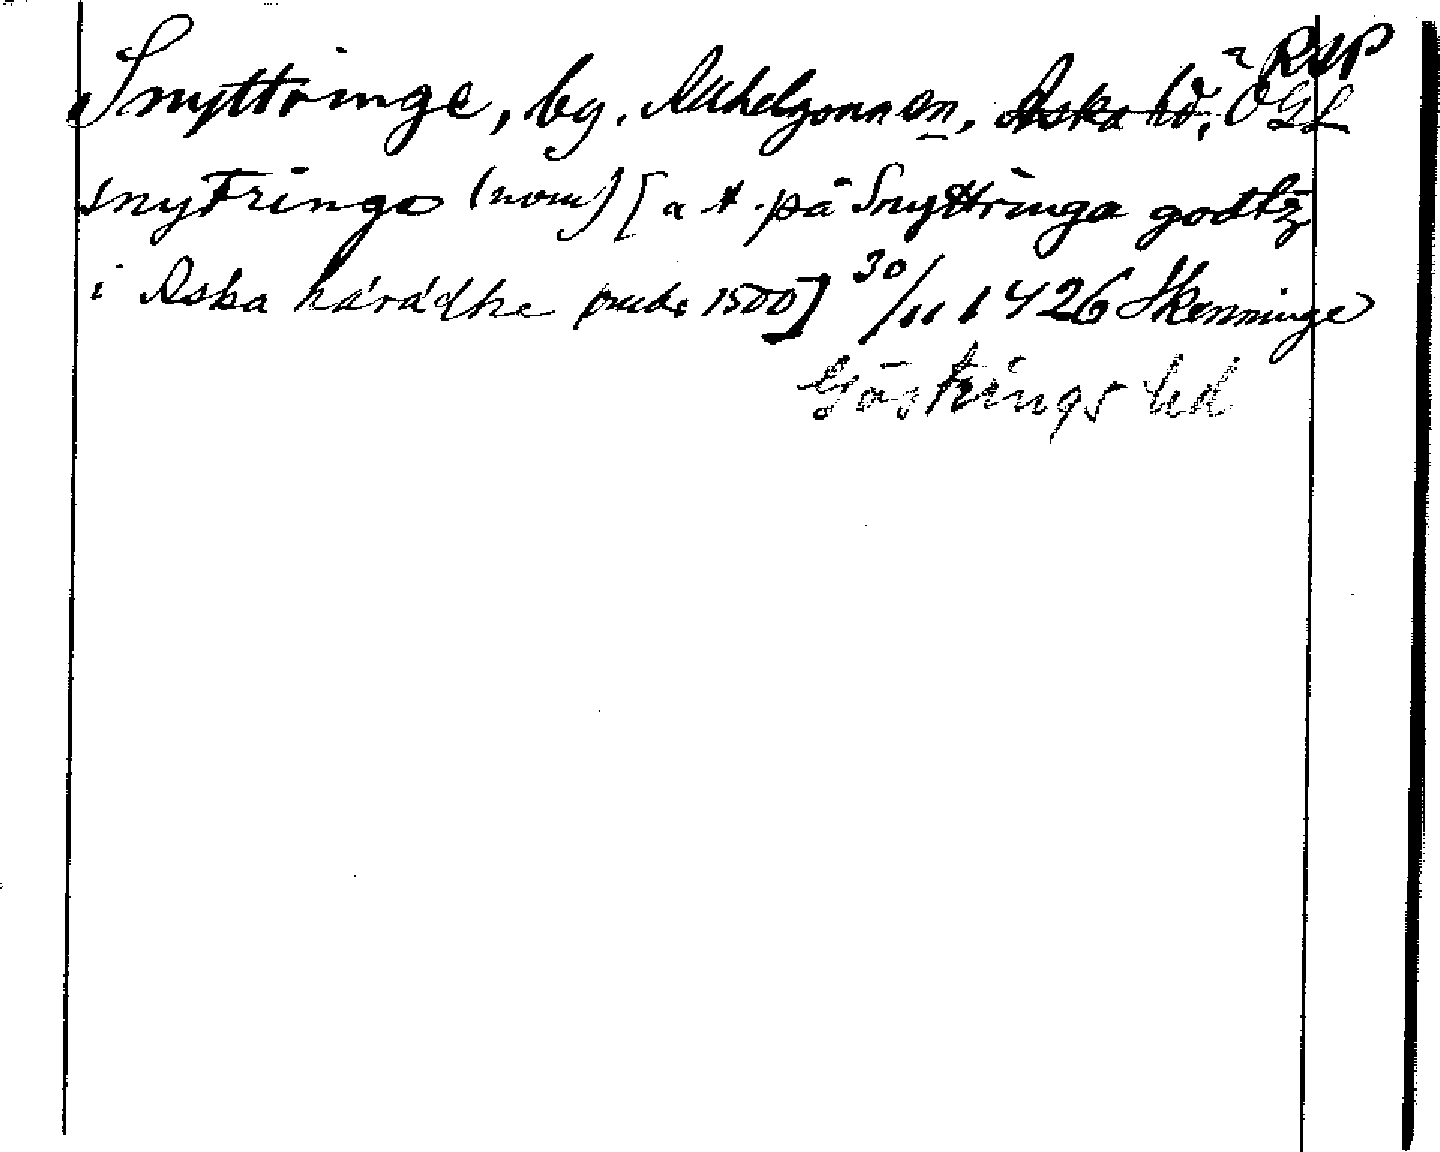 RAP
Snyttringe, by, Allhelgona sn, Aska hd, ÖGL
snytringe (nom) [a t. på Snyttringa godtz
i Aska härádhe 1500] 30/11 1426 Skenninge
Göstrings hd